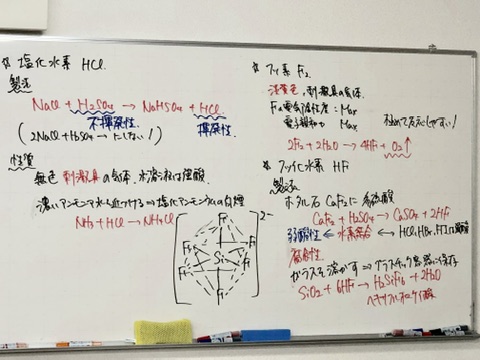 ☆ 塩化水素 HCl
製法
NaCl + H₂SO₄ → NaHSO₄ + HCl
不揮発性 揮発性
(2NaCl + H₂SO₄ → としない!)
性質
無色 刺激臭の気体、水溶液は強酸
濃いアンモニア水を近づける ⇒ 塩化アンモニウムの白煙
NH₃ + HCl → NH₄Cl
2-
F F
F Si F
F F
☆ フッ素 F₂
淡黄色、刺激臭の気体
Fの電気陰性度 : Max
電子親和力 Max
極めて反応しやすい!
2F₂ + 2H₂O → 4HF + O₂↑
☆ フッ化水素 HF
製法
ホタル石 CaF₂に
CaF₂ + H₂SO₄ → CaSO₄ + 2HF
弱酸性 ⇐ 水素結合 ⇔ HCl, HBr, HIは強酸
腐食性
ガラスを溶かす ⇒ プラスチック容器に保存
SiO₂ + 6HF → H₂SiF₆ + 2H₂O
ヘキサフルオロケイ酸